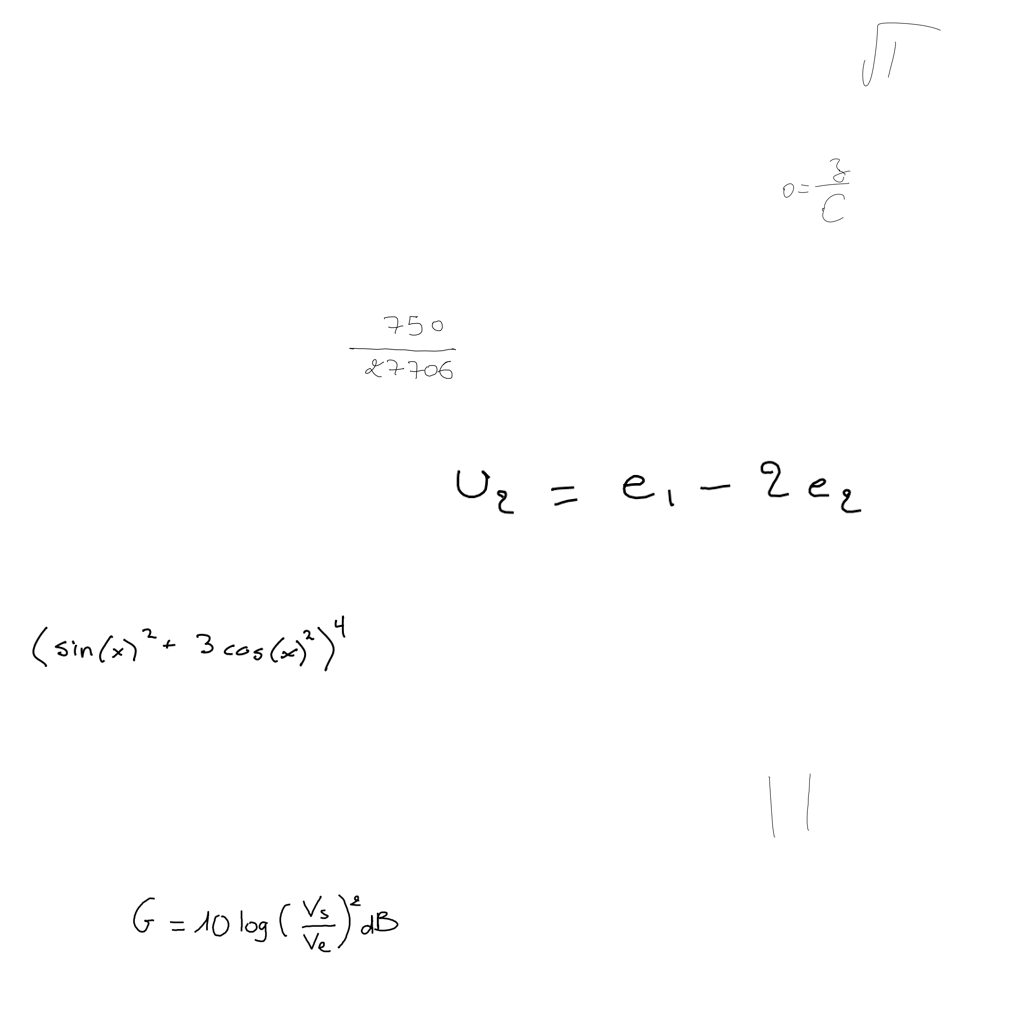 √1
0 = 3/C
750/27706
U₂ = e₁ - 2e₂
(sin(x)² + 3 cos(x)²)⁴
11
G = 10 log(Vs/Ve)² dB